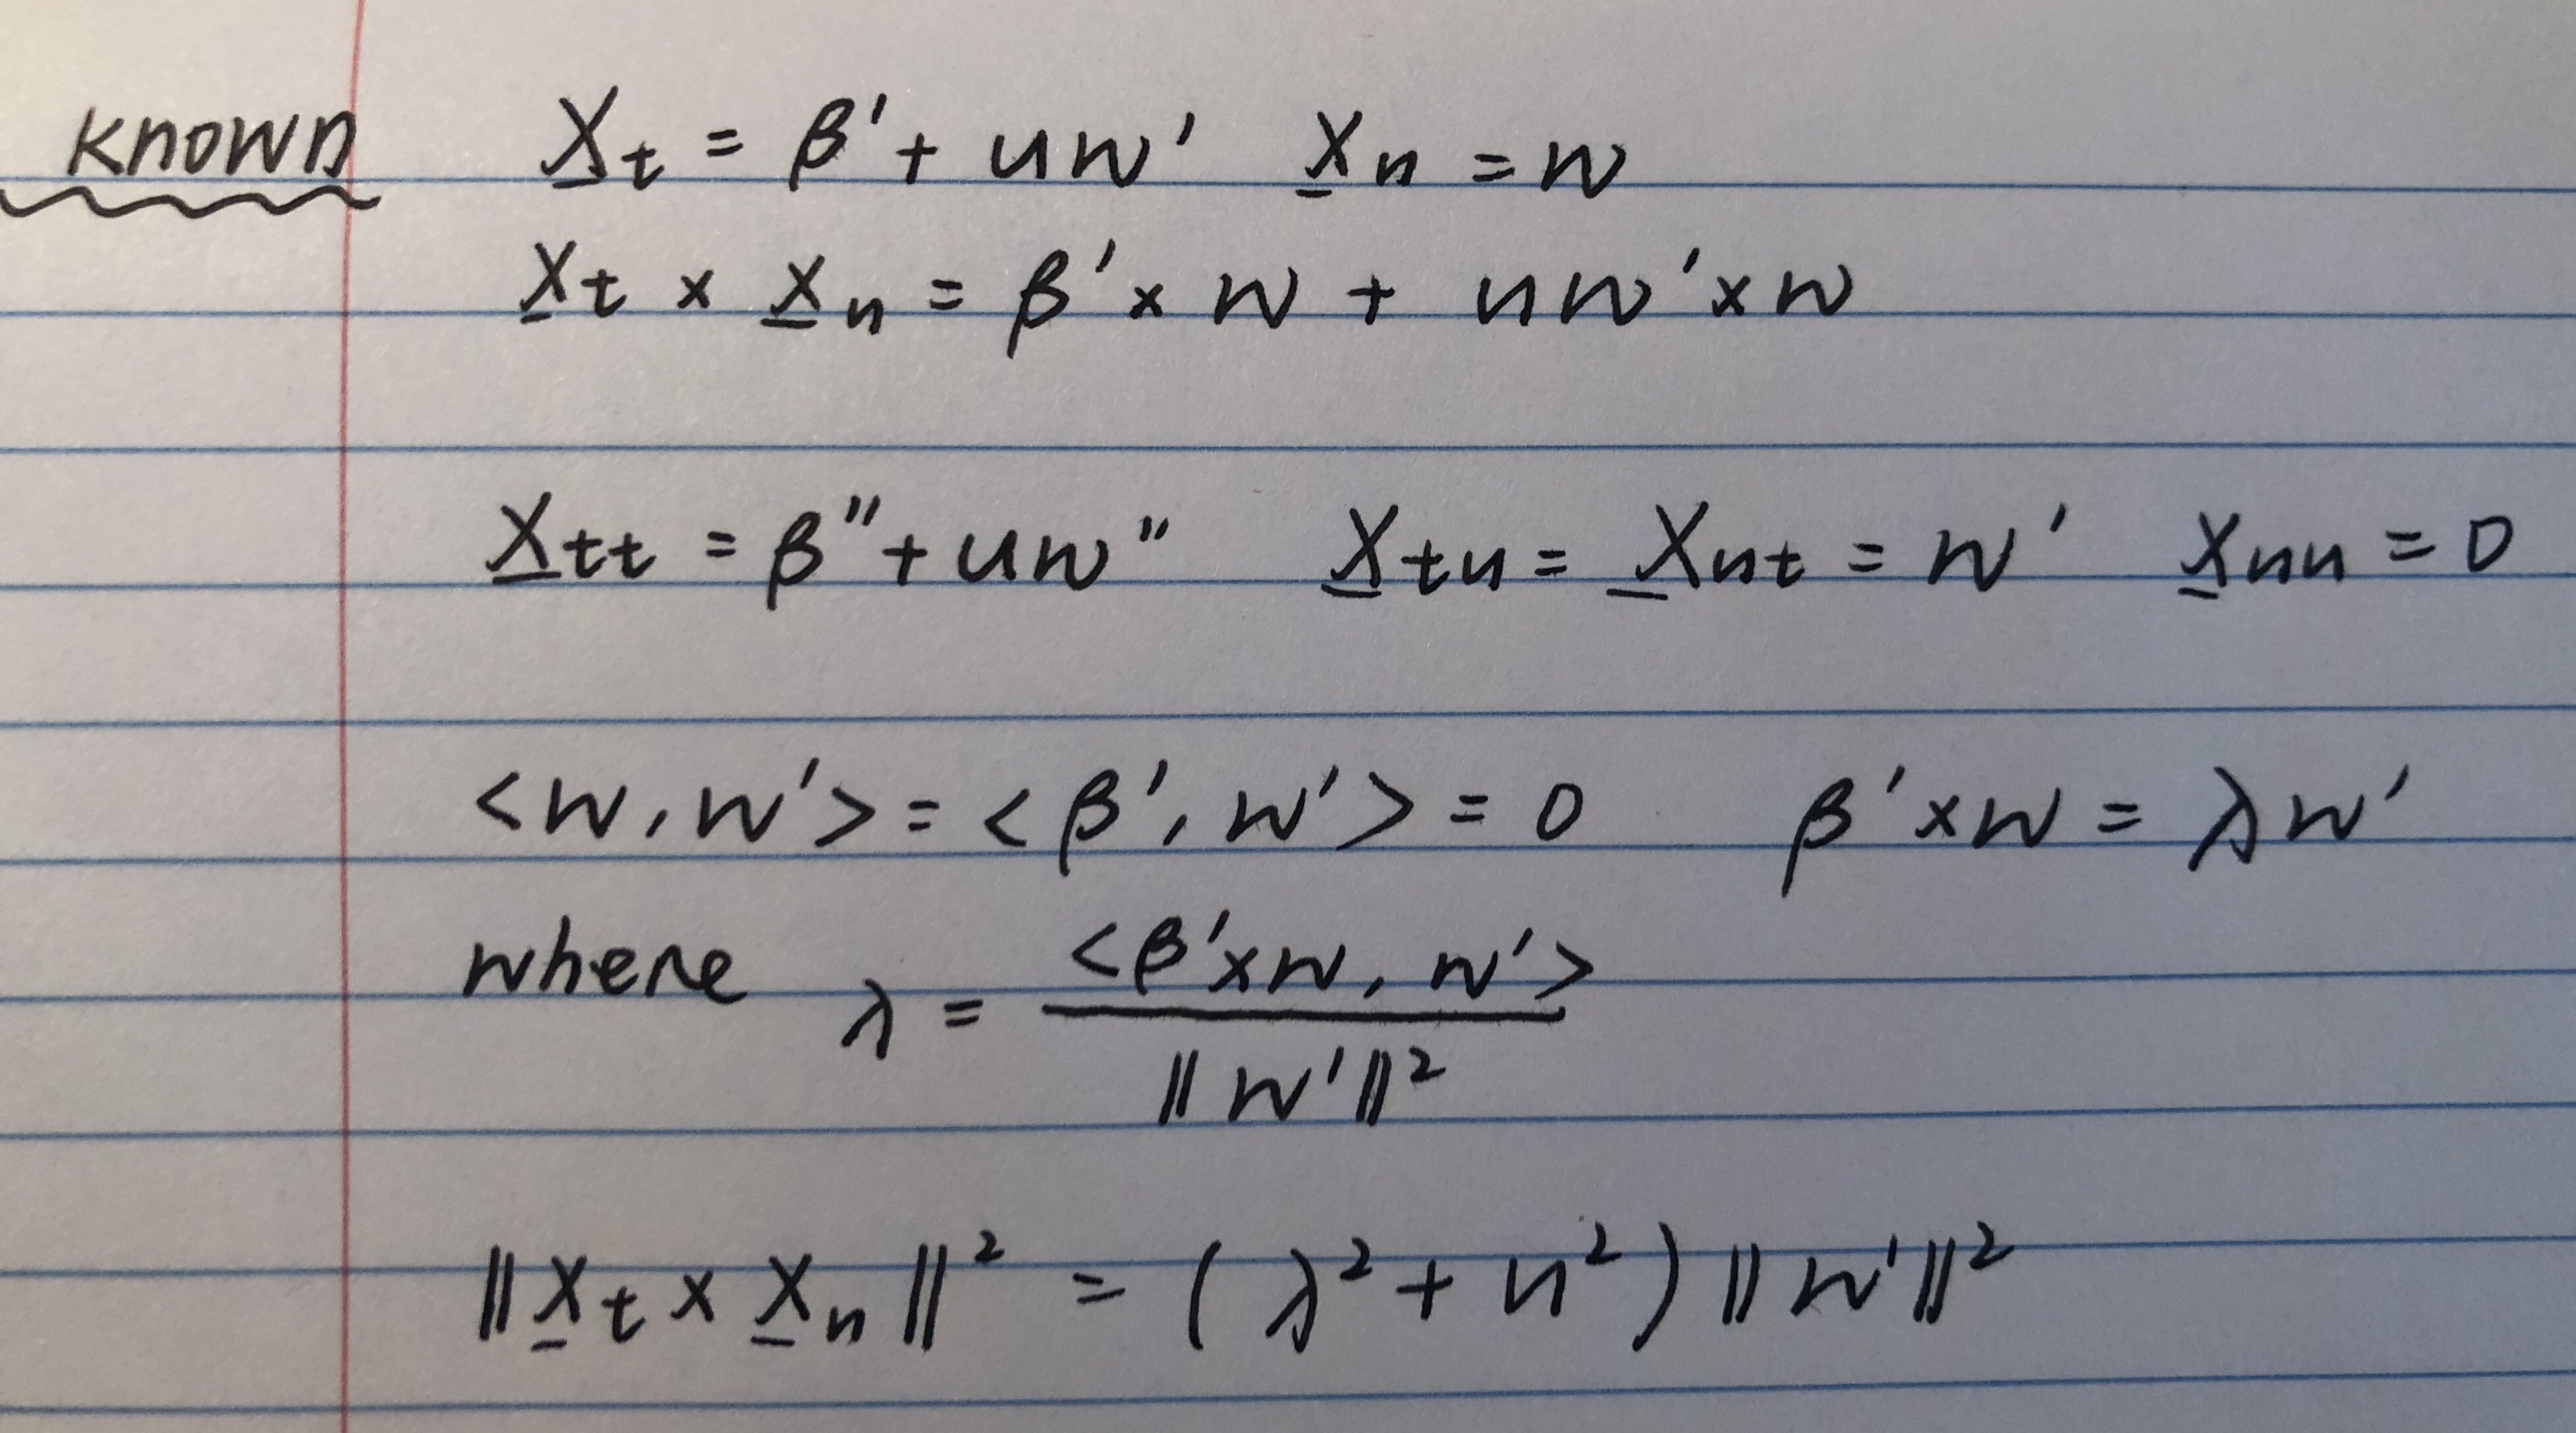 known X_t = β' + uw' X_u = w
X_t × X_u = β' × w + uw' × w
X_tt = β'' + uw'' X_tu = X_ut = w' X_uu = 0
<w, w'> = <β', w'> = 0 β' × w = λw'
where λ = <β' × w, w'> / ||w'||²
||X_t × X_u||² = (λ² + u²) ||w'||²